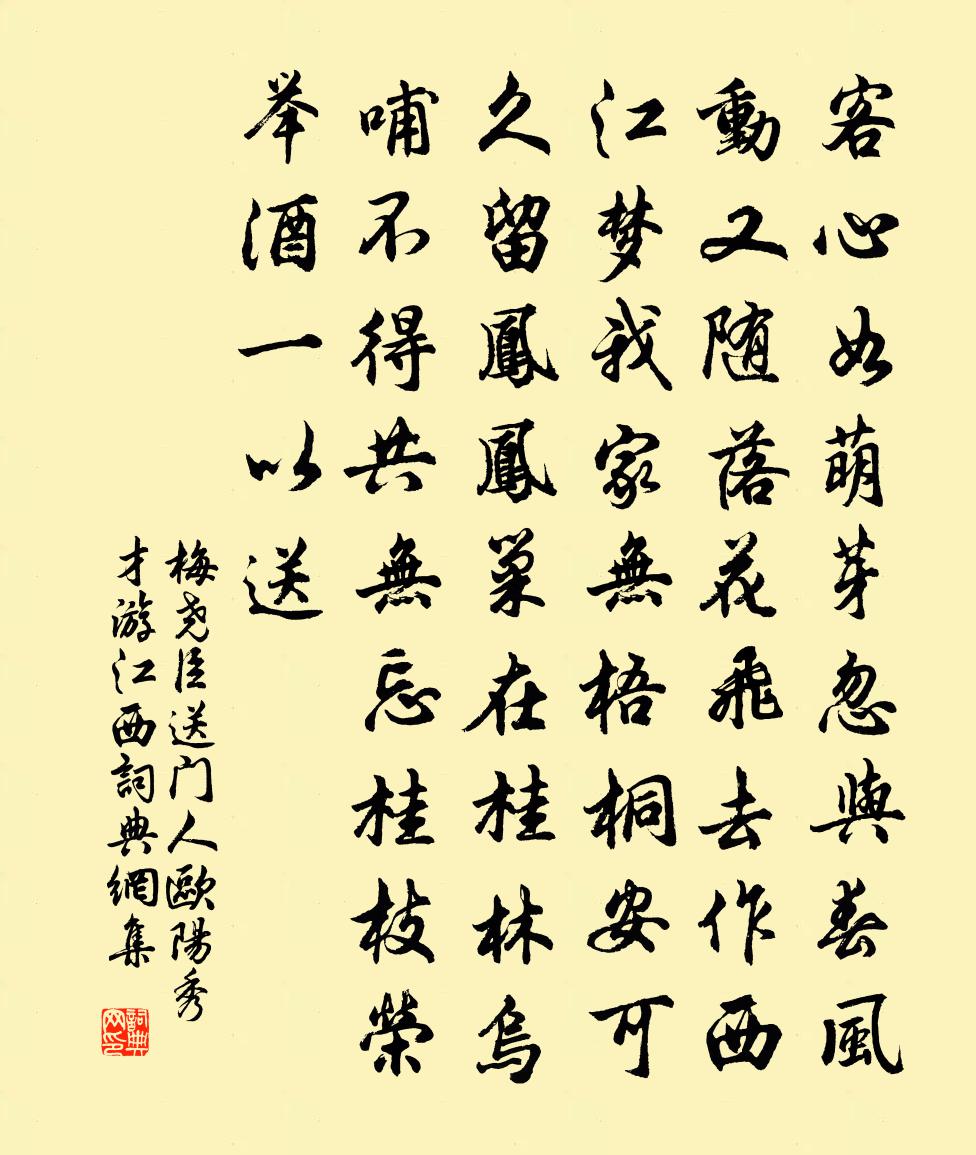 客心如萌芽忽與春風
動又随落花飛去作西
江梦我家無梧桐安可
久留鳳鳳巢在桂林烏
哺不得共無忘桂枝榮
举酒一以送
梅尧臣送门人歐陽秀
才游江西詞典網集
詞典网印